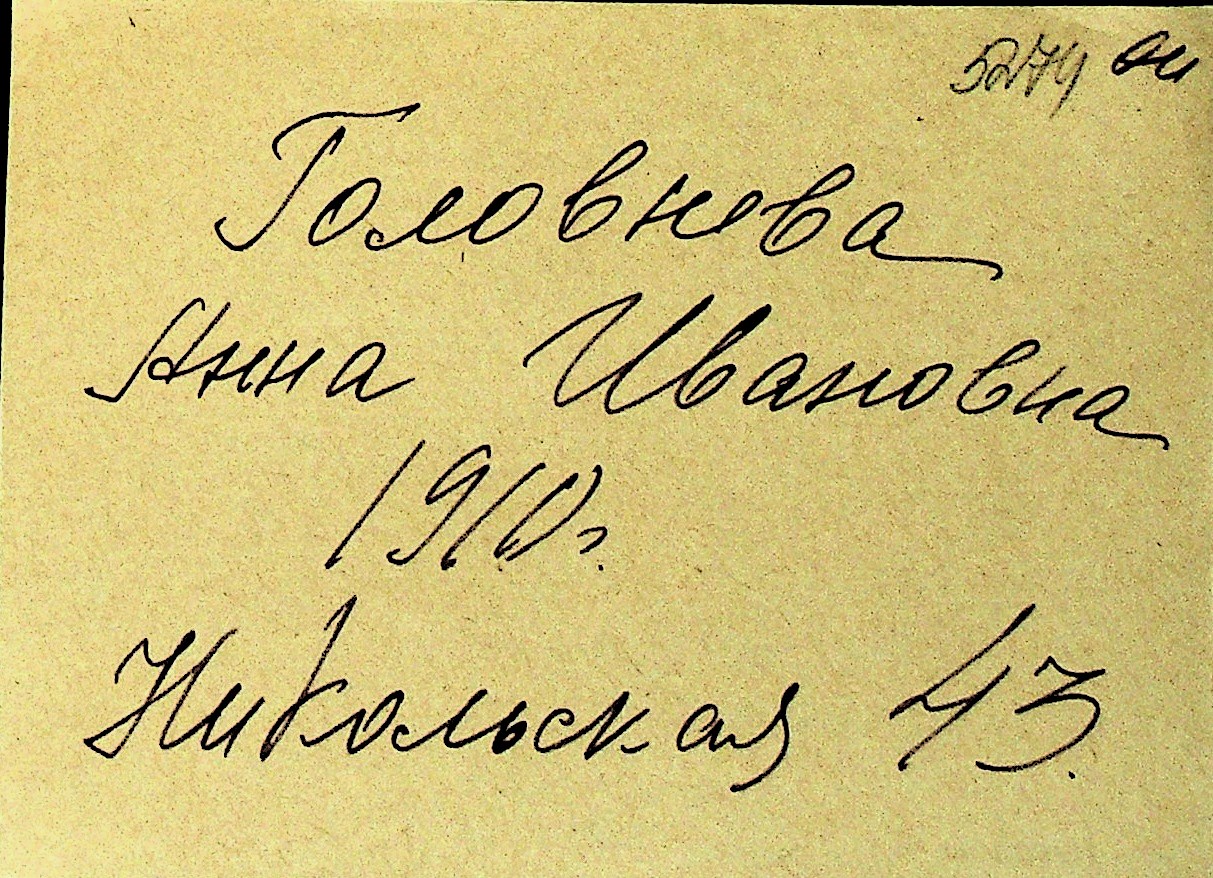 5274 он
Головнева
Анна Ивановна
1910г.
Никольская 43.